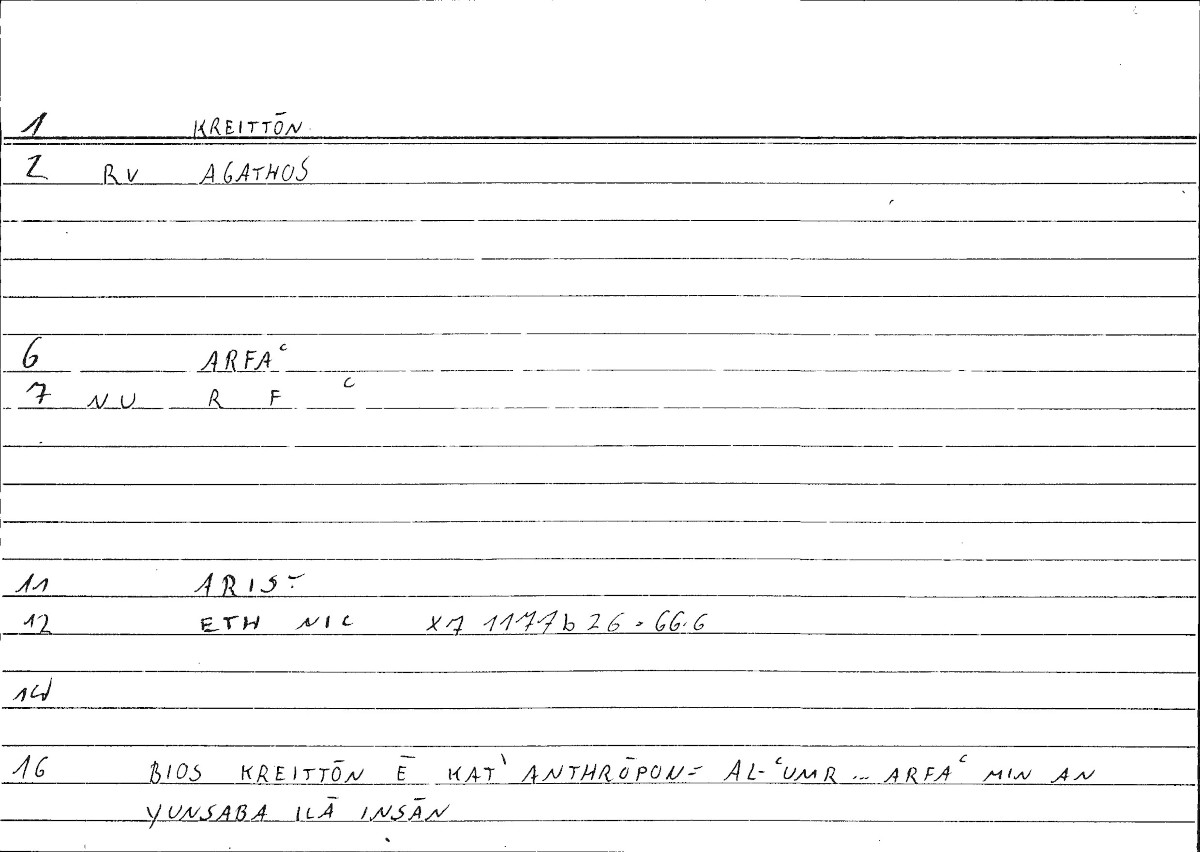 1 KREITTŌN
2 RV AGATHOS
6 ARFAʿ
7 NU R F ʿ
11 ARIST
12 ETH NIC X7 1177b26 = 66.6
14
16 BIOS KREITTŌN Ē KAT' ANTHRŌPON = AL-ʿUMR ... ARFAʿ MIN AN
YUNSABA ILĀ INSĀN